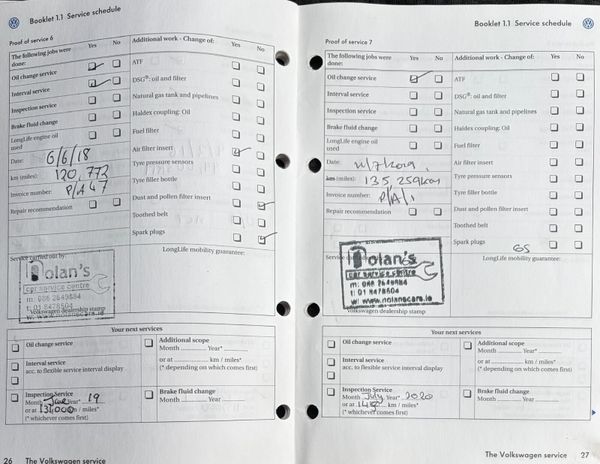 Booklet 1.1 Service schedule
Proof of service 6
The following jobs were done: Yes No
Oil change service
Interval service
Inspection service
Brake fluid change
LongLife engine oil used
Date: 6/6/18
km (miles): 120,772
Invoice number: P/A 47
Repair recommendation
Additional work - Change of: Yes No
ATF
DSG®: oil and filter
Natural gas tank and pipelines
Haldex coupling: Oil
Fuel filter
Air filter insert
Tyre pressure sensors
Tyre filler bottle
Dust and pollen filter insert
Toothed belt
Spark plugs
LongLife mobility guarantee:
Service carried out by:
Polan's
car service centre
m: 086 2649884
t: 01 8478504
w: www.nolanscars.ie
Volkswagen dealership stamp
Your next services
Oil change service
Interval service
acc. to flexible service interval display
Inspection Service
Month June Year* 19
or at 134000 km / miles*
(* whichever comes first)
Additional scope
Month Year*
or at km / miles*
(* depending on which comes first)
Brake fluid change
Month Year
26 The Volkswagen service
Booklet 1.1 Service schedule
Proof of service 7
The following jobs were done: Yes No
Oil change service
Interval service
Inspection service
Brake fluid change
LongLife engine oil used
Date:
km (miles): 135,259km
Invoice number: P/A/1
Repair recommendation
Additional work - Change of: Yes No
ATF
DSG®: oil and filter
Natural gas tank and pipelines
Haldex coupling: Oil
Fuel filter
Air filter insert
Tyre pressure sensors
Tyre filler bottle
Dust and pollen filter insert
Toothed belt
Spark plugs
LongLife mobility guarantee:
Polan's
car service centre
m: 086 2649884
t: 01 8478504
w: www.nolanscars.ie
Volkswagen dealership stamp
Your next services
Oil change service
Interval service
acc. to flexible service interval display
Inspection Service
Month July Year* 2020
or at km / miles*
(* whichever comes first)
Additional scope
Month Year*
or at km / miles*
(* depending on which comes first)
Brake fluid change
Month Year
The Volkswagen service 27